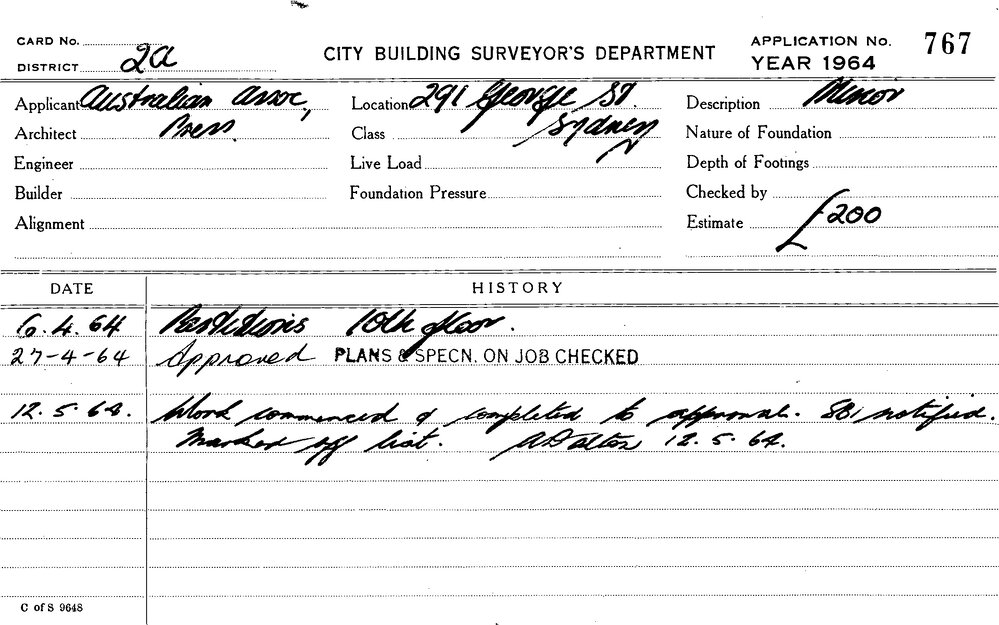 CARD No.
DISTRICT 2a
CITY BUILDING SURVEYOR'S DEPARTMENT
APPLICATION No. 767
YEAR 1964
Applicant Australian Assoc,
Press.
Location 291 George St.
Sydney
Description Minor
Architect
Class
Nature of Foundation
Engineer
Live Load
Depth of Footings
Builder
Foundation Pressure
Checked by
Alignment
Estimate £200
DATE HISTORY
6.4.64 Partitions 10th floor.
27-4-64 Approved PLANS & SPECN. ON JOB CHECKED
12.5.64. Work commenced & completed to approval. SBI notified.
Marked off list. 12.5.64.
C of S 9648